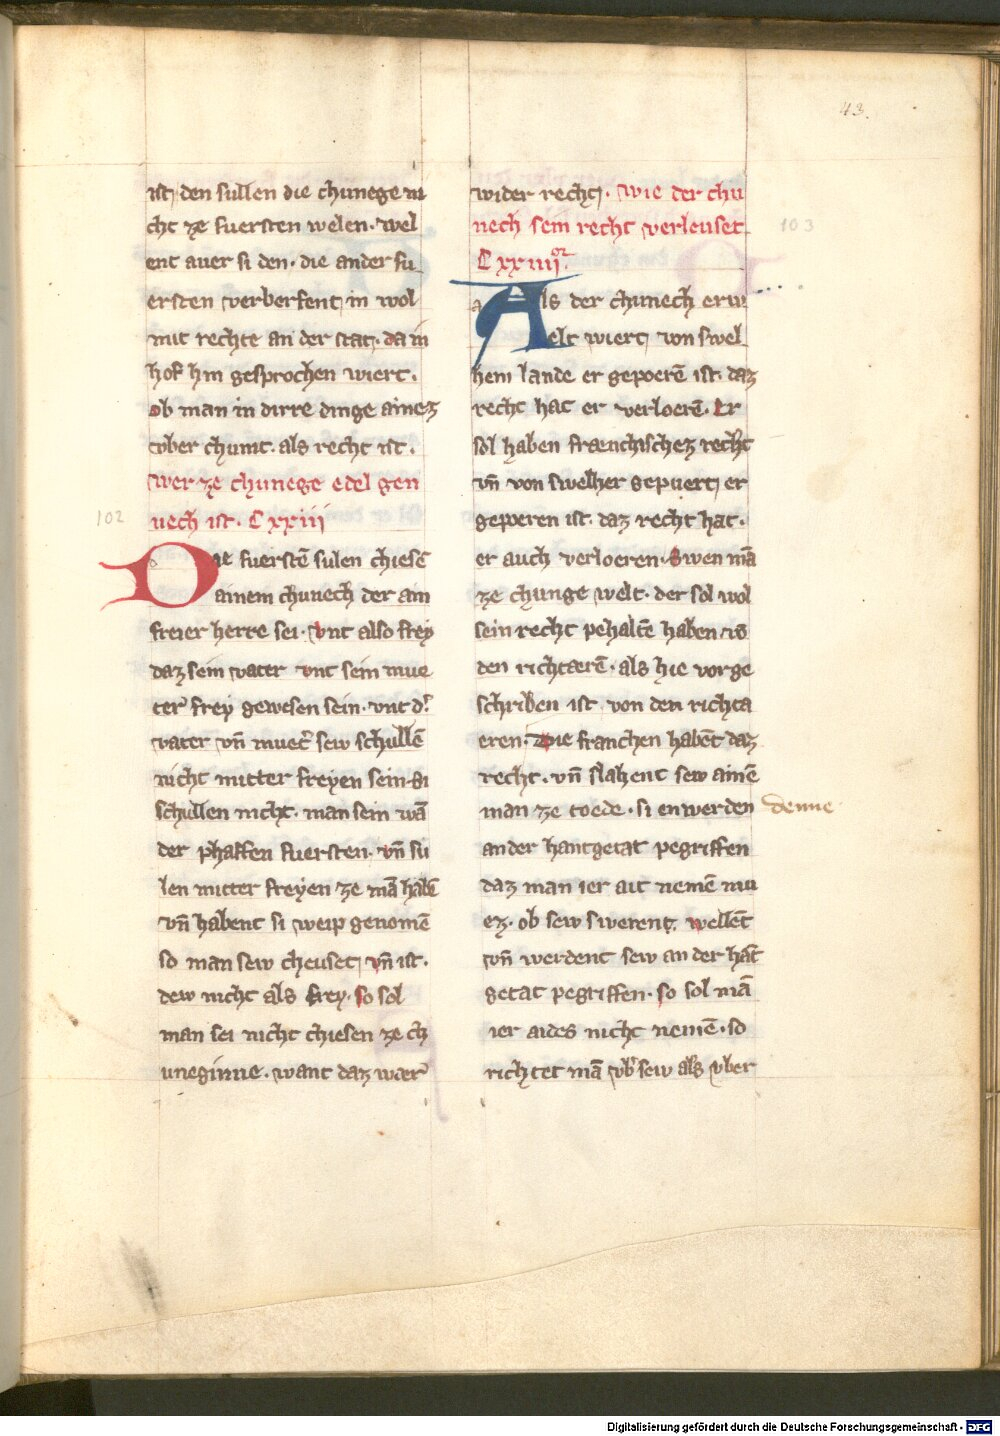 43.
ist, den sullen die chunege ni
cht ze fuersten welen. wel
ent aver si den. die ander fu
ersten verberfent, in wol
mit rechte an der stat. da in
hof hin gesprochen wiert.
ob man in dirre dinge ainez
vber chumt. als recht ist.
wer ze chunege edel gen
uech ist. Cxxiii
102
Die fuerstē sulen chiesē
ainem chunech der ain
freier herre sei. vnt also frey
daz sein vater vnt sein mue
ter frey gewesen sein. vnt d'
vater vn̄ muet' sew schullē
nicht mitter freyen sein. si
schullen nicht. man sein wā
der phaffen fuersten. vn̄ su
len mitter freyen ze mā habē
vn̄ habent si weip genomē
so man sew cheuset, vn̄ ist.
dew nicht als frey. so sol
man sei nicht chiesen ze ch
uneginne. want daz wær
wider recht. wie der chu
nech sein recht verleuset
Cxxiiii
103
Als der chunech erw
elt wiert, von swel
hem lande er geporē ist. daz
recht hat er verlorē. Er
sol haben frænchischez recht
vn̄ von swelher gepuert, er
geporen ist. daz recht hat.
er auch verloeren. Swen mā
ze chunge welt. der sol wol
sein recht pehaltē haben vō
den richtærē. als hie vorge
schriben ist, von den richtæ
eren. Die franchen habēt daz
recht. vn̄ slahent sew ainē
man ze tode. si en werden denne
an der hantgetat pegriffen
daz man ier ait nemē mu
ez. ob sew swerent. wellēt
vn̄ werdent sew an der hāt
getat pegriffen. so sol mā
ier aides nicht nemē. so
richtet mā vb' sew als vber
Digitalisierung gefördert durch die Deutsche Forschungsgemeinschaft - DFG